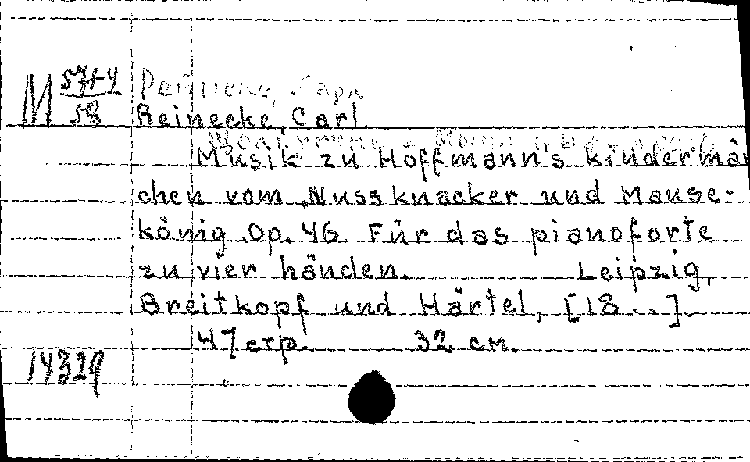 M 5714/58
Рейнеке, Карл
Reinecke, Carl
Musik zu Hoffmann's kindermär
chen vom Nussknacker und Mause-
könig Op. 46 Für das pianoforte
zu vier händen. Leipzig,
Breitkopf und Härtel, [18..]
47 стр. 32 см.
14329